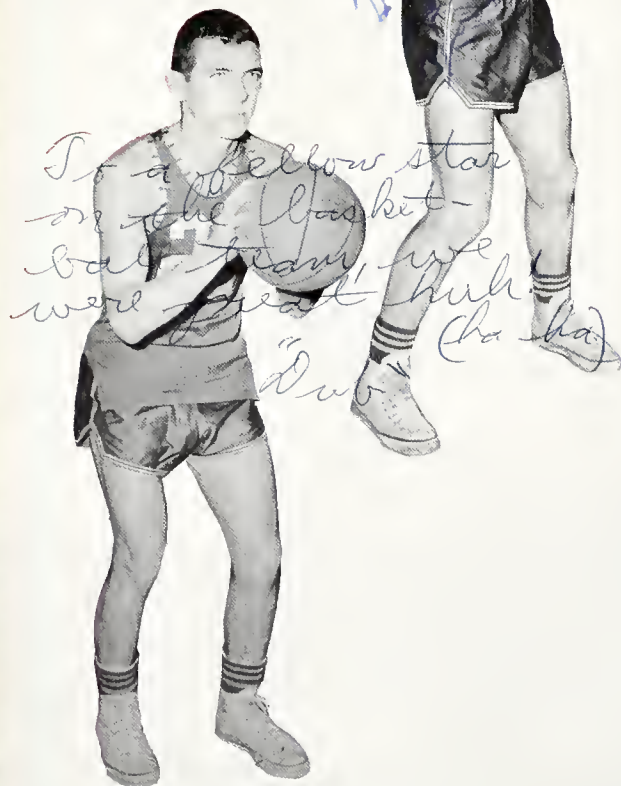 To a fellow star
on the basket-
ball team, we
were great huh!
(ha ha)
"Dub"